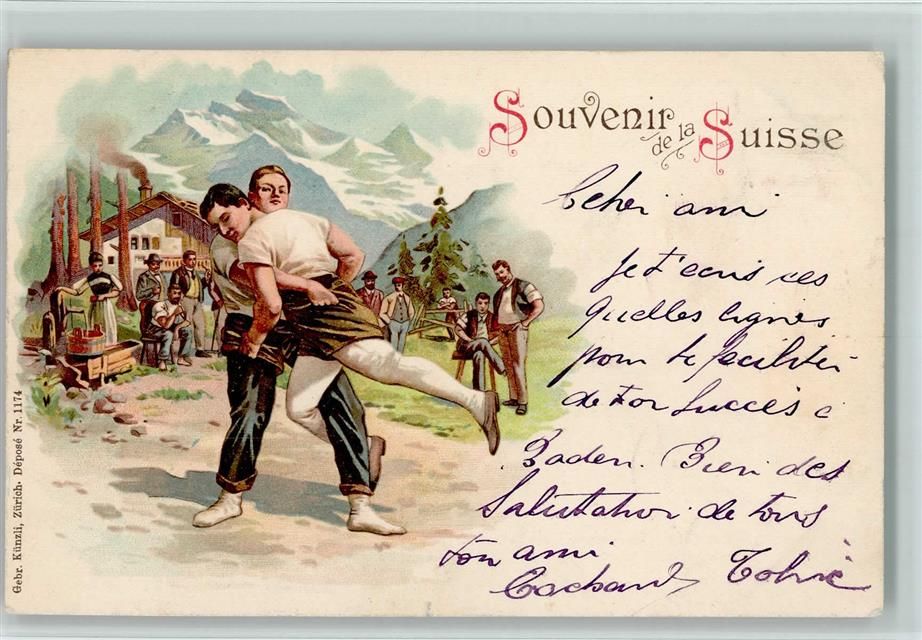 Souvenir
de la
Suisse
Cher ami
Je t'ecris ces
quelles lignes
pour te faciliter
de ton succès a
Baden. Bien des
Salutation de tous
ton ami
Gebr. Künzli, Zürich. Déposé Nr. 1174